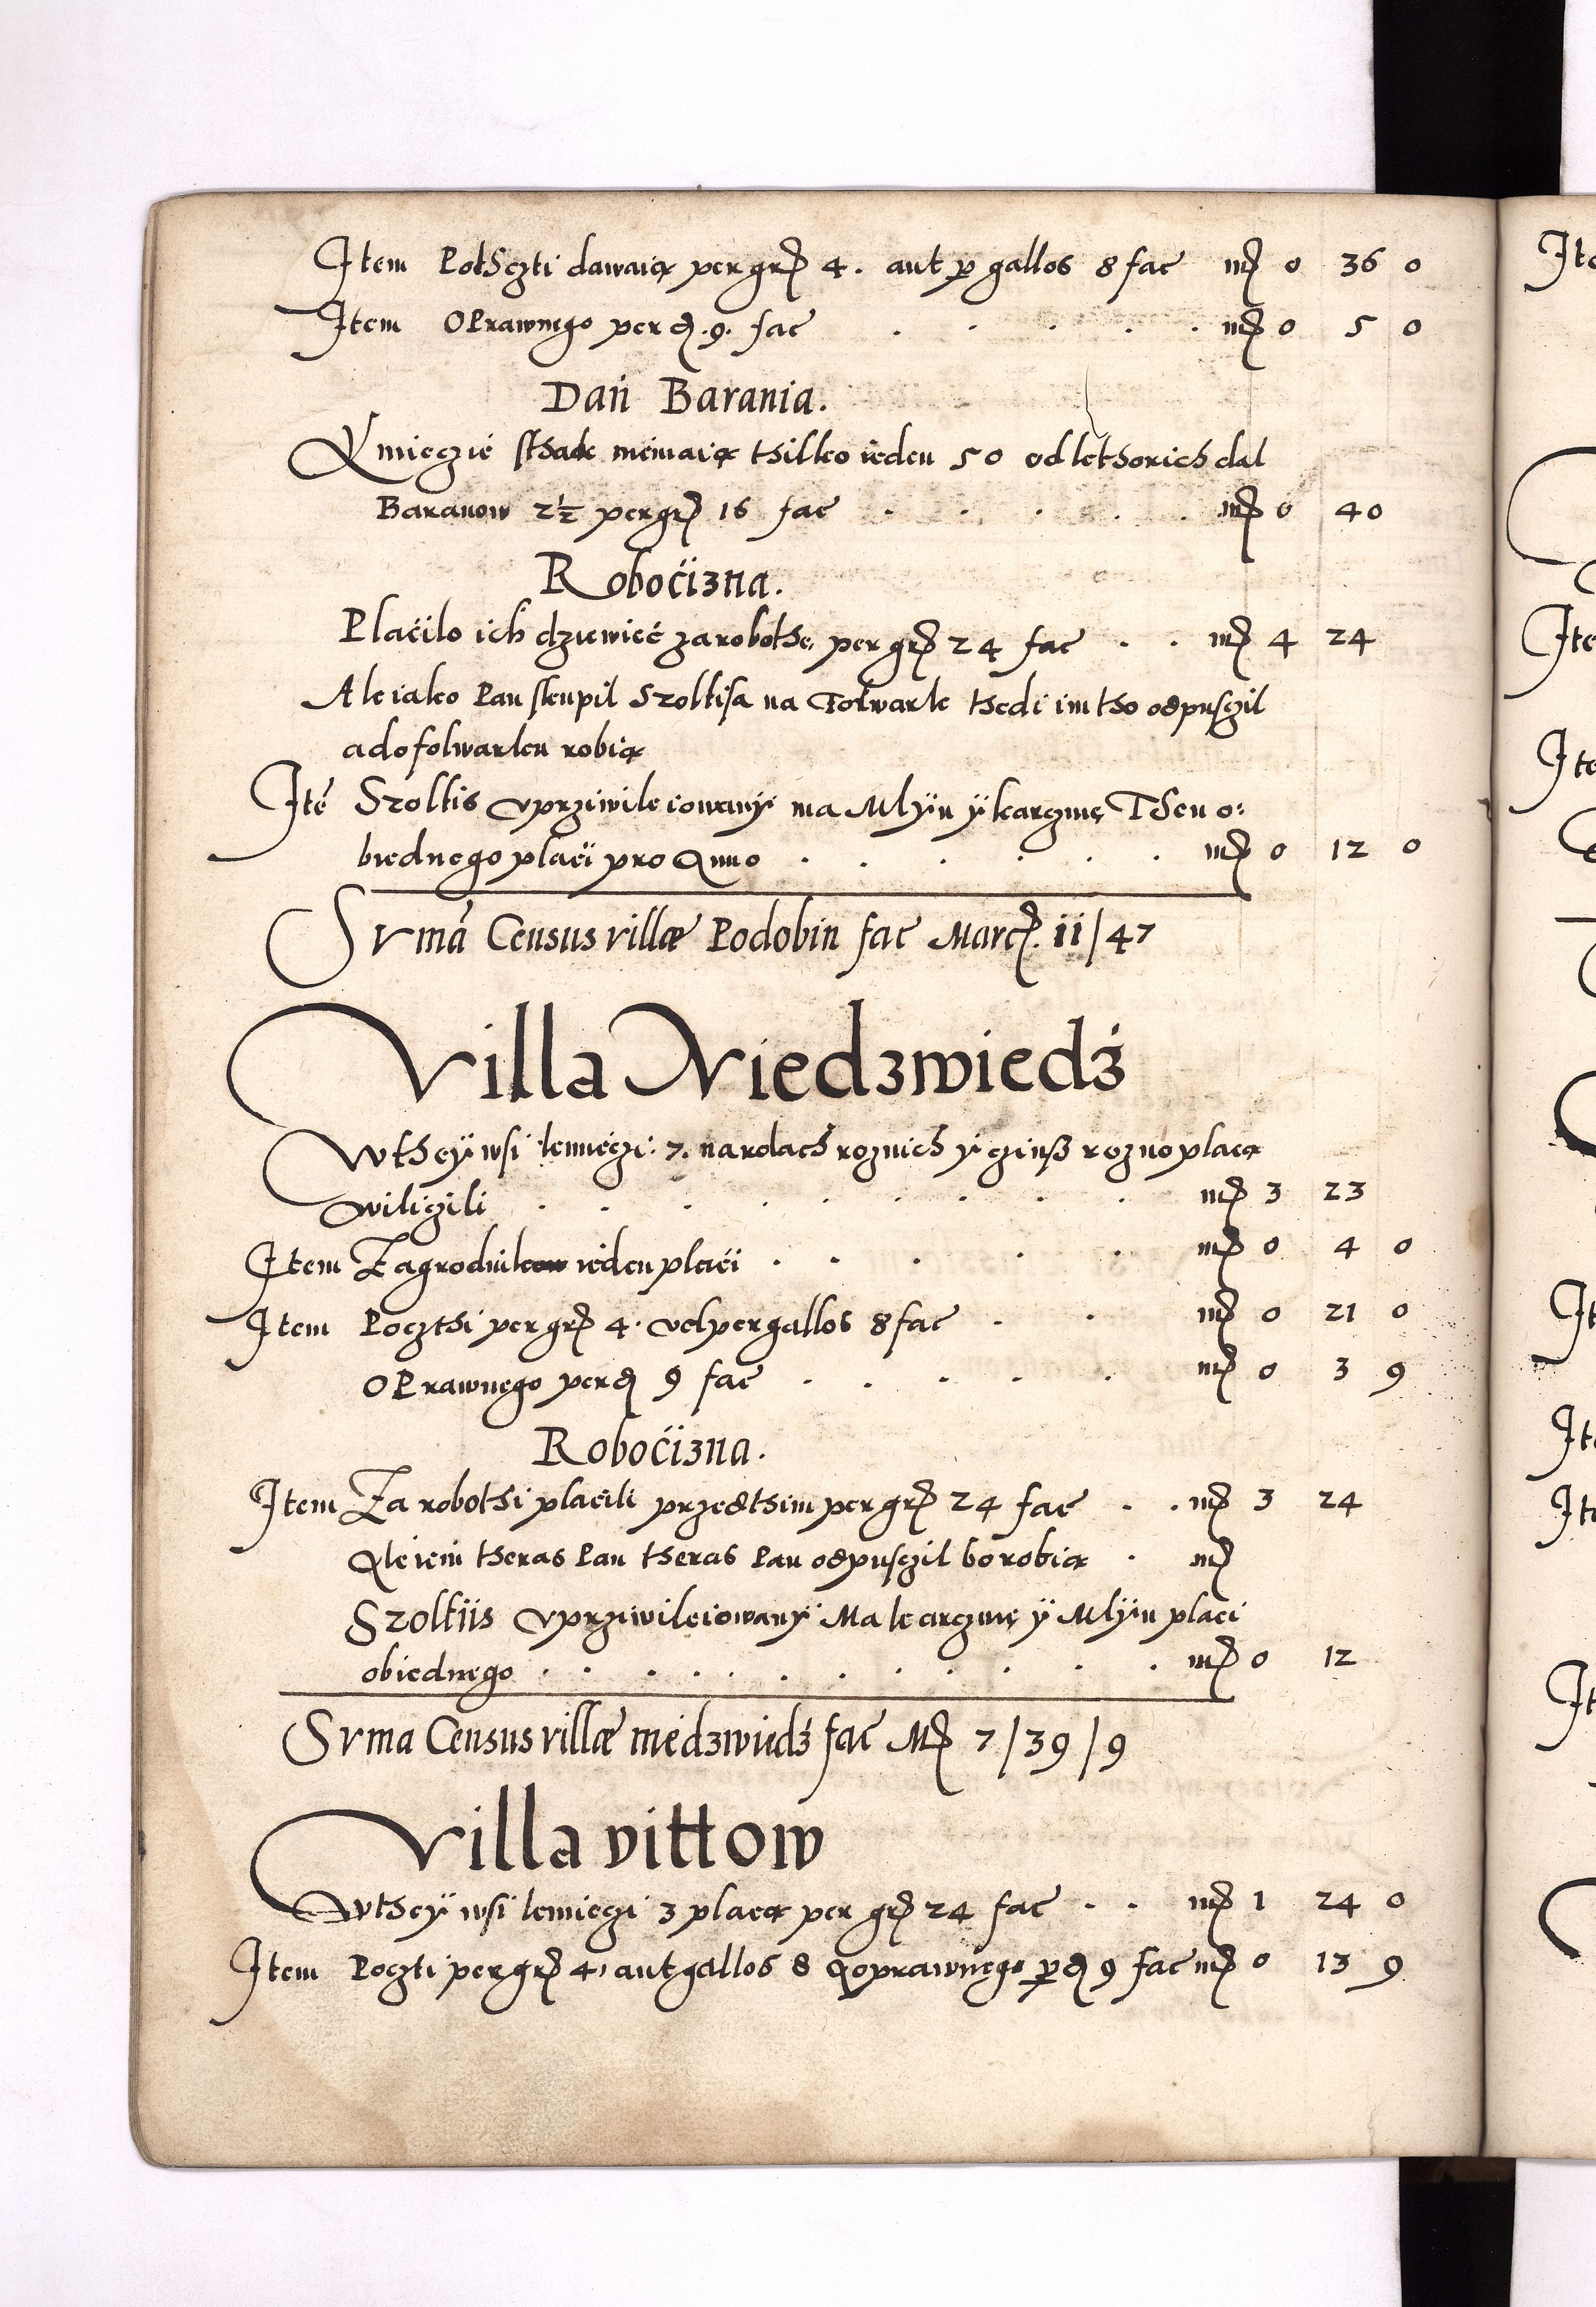 Item Pothczti dawaią per grꝭ 4. aut ꝑ gallos 8 fac mꝭ 0 36 0
Item OPrawnego per ꝺ. 9. fac mꝭ 0 5 0
Dań Barania.
Kmieczie sthad niemaią thilko ieden 50 od kthorich dal
Baranow 2½ per grꝭ 16 fac mꝭ 0 40
Robociʒna.
Placilo ich dziewięć za robothę per grꝭ 24 fac mꝭ 4 24
Ale iako Pan skupil Szoltisa na Folwark thedi im tho odpusczil
a do folwarku robią
Ite Szoltis vprziwileiowany ma Mlyn ÿ karczmę Then o:
biednego placi pro Anno mꝭ 0 12 0
Svma Census villæ Podobin fac Marcꝭ. ii/47
Villa Niedʒwiedʒ
W theÿ wsi kmieczi. 7. na rolach roznich ÿ czinsz rozno placą
wiliczili mꝭ 3 23
Item Zagrodnik ieden placi mꝭ 0 4 0
Item Poczthi per grꝭ 4. vel per gallos 8 fac mꝭ 0 21 0
OPrawnego per ꝺ 9 fac mꝭ 0 3 9
Robociʒna.
Item Za robothi placili przedthim per grꝭ 24 fac mꝭ 3 24
Ale iem theras Pan theras Pan odpusczil bo robią mꝭ
Szoltiis vprziwileiowanÿ Ma karczmę ÿ Mlÿn placi
obiednego mꝭ 0 12
Svma Census villæ niedʒwiedʒ fac Mꝭ 7/39/9
Villa vittow
W theÿ wsi kmieczi 3 placą per grꝭ 24 fac mꝭ 1 24 0
Item Poczti per grꝭ 4. aut gallos 8 A oprawnego ꝑ ꝺ 9 fac mꝭ 0 13 9